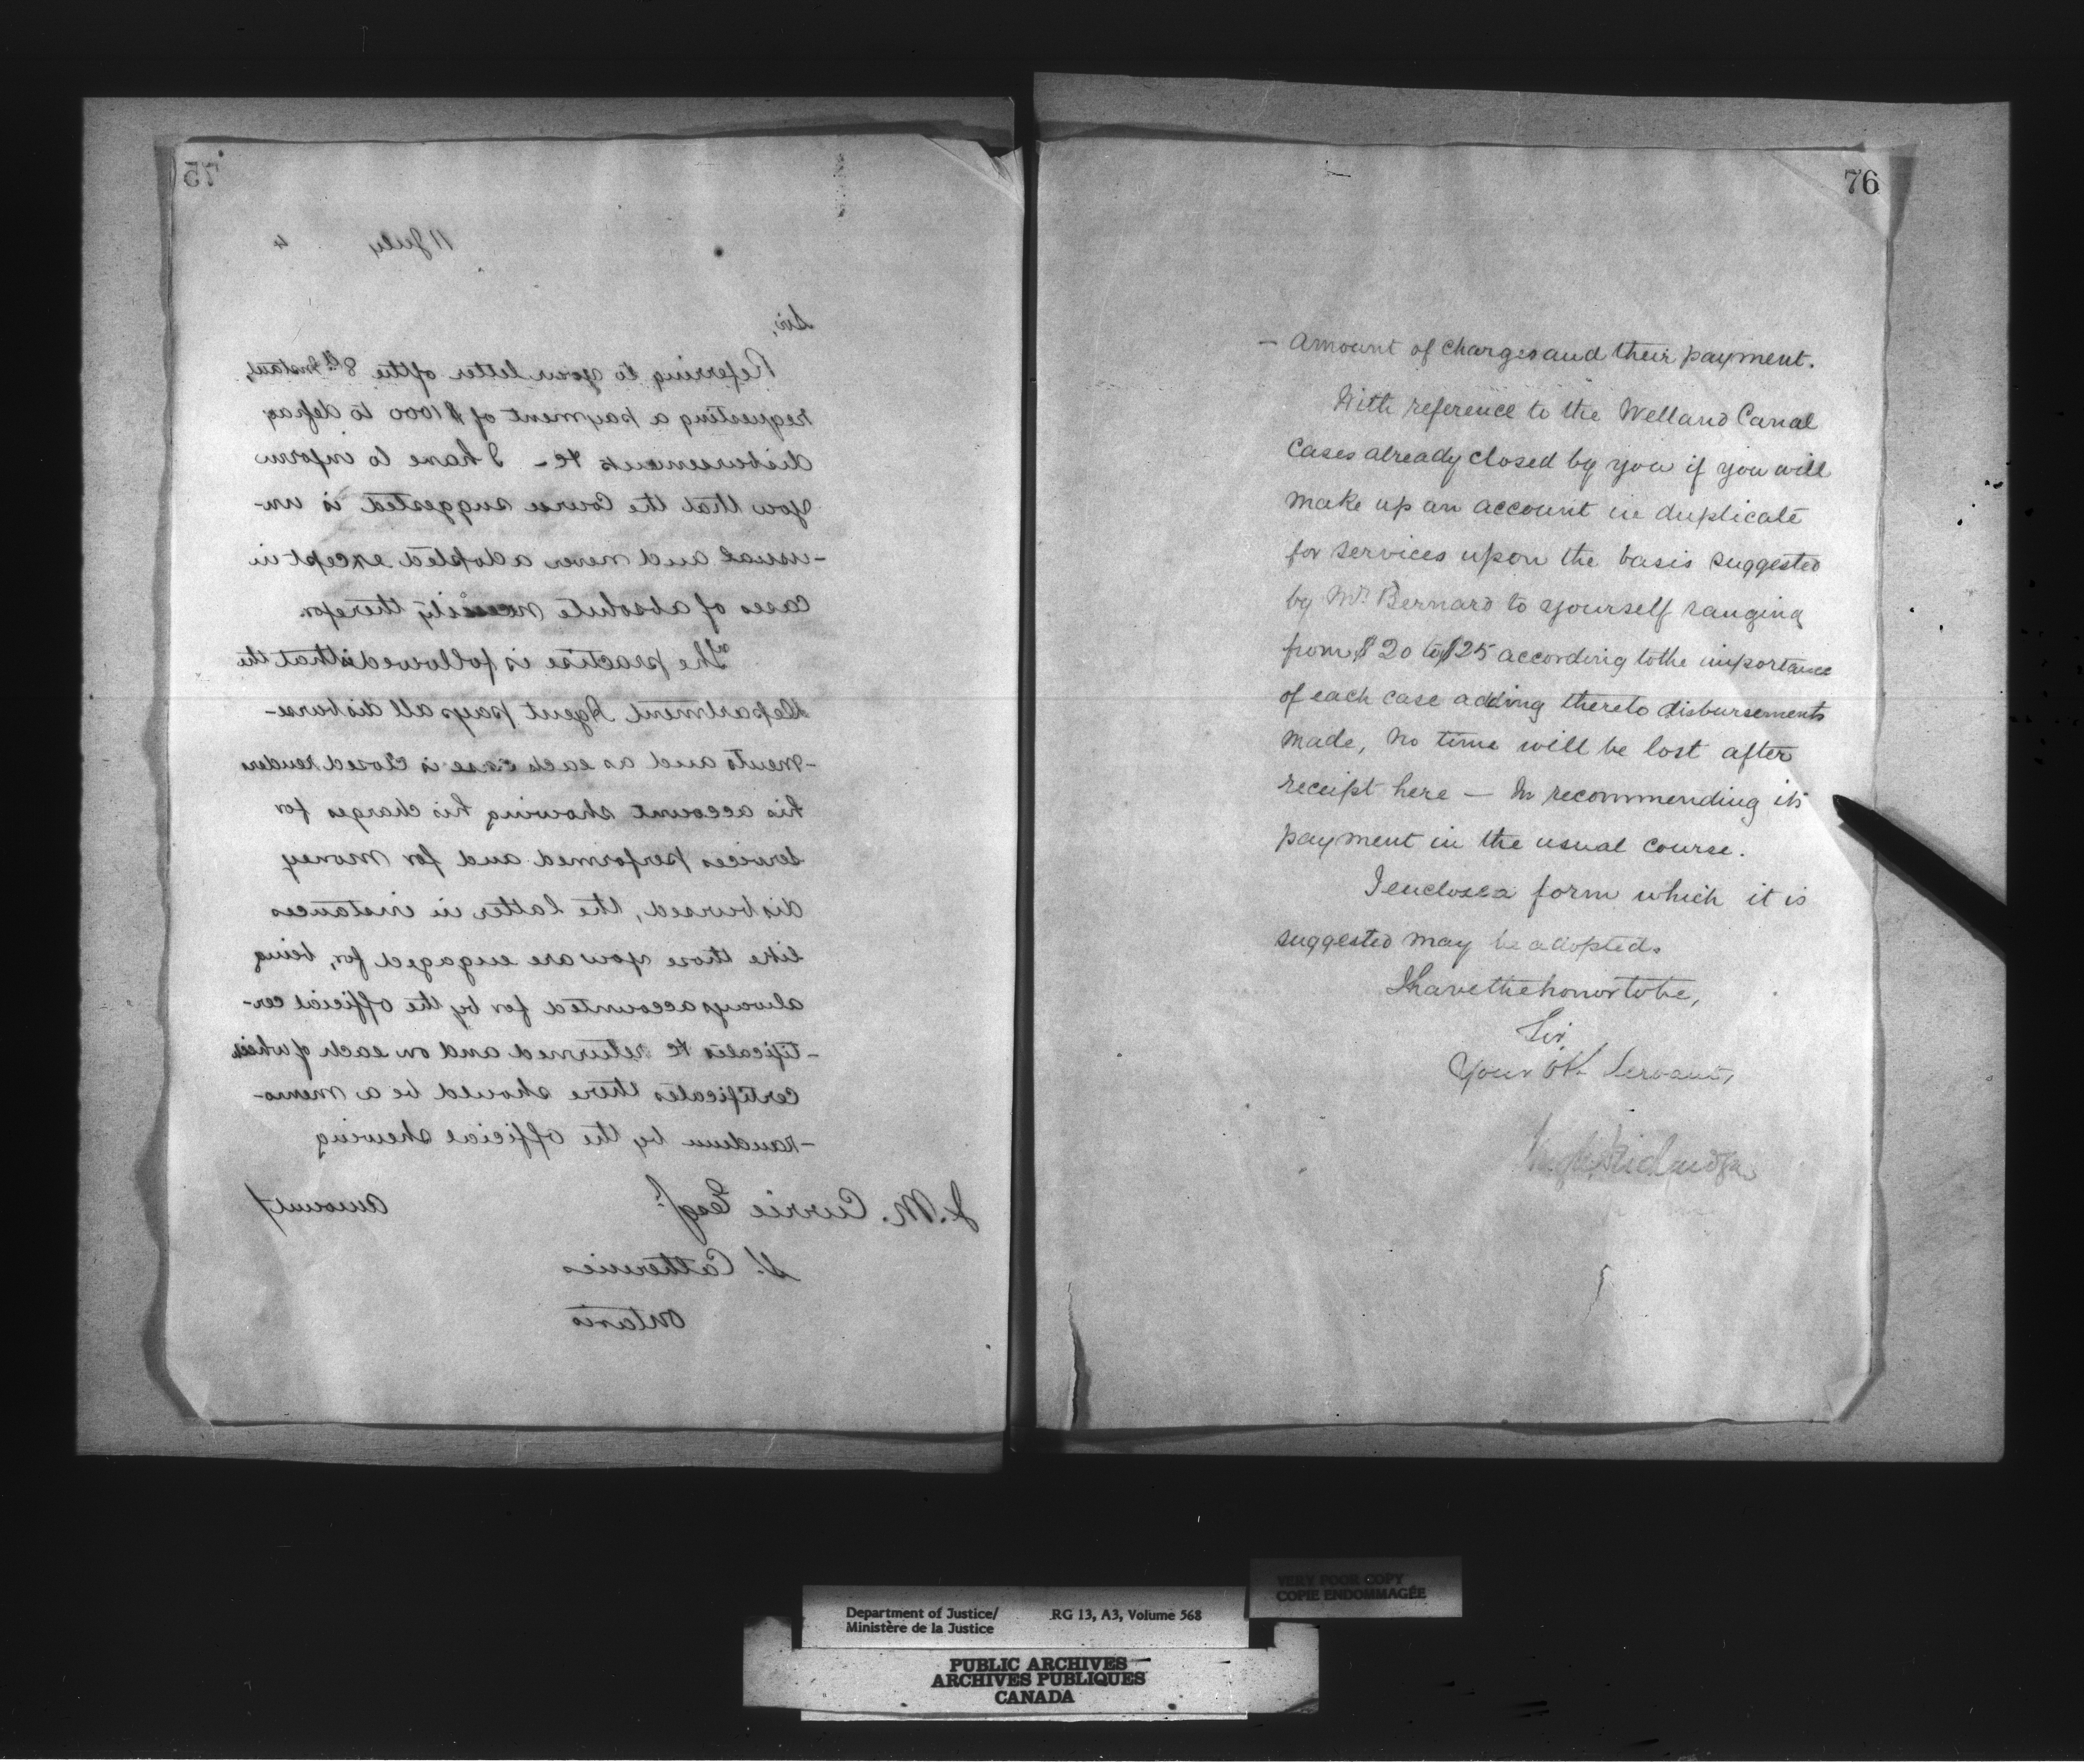 75
11 July 4
Sir,
Referring to your letter of the 8th Instant,
requesting a payment of $1000 to defray
disbursements &c - I have to inform
you that the Course suggested is un-
-usual and never adopted except in
cases of absolute necessity therefor.
The practise is followed that the
Department Agent pays all disburse-
-ments and as each case is closed renders
his account showing his charges for
services performed and for money
disbursed, the latter in instances
like those you are engaged for, being
always accounted for by the official cer-
-tificates &c returned and on each of which
certificates there should be a memo-
-randum by the official shewing
amount/
J. M. Currie Esqr.
St. Catherines
Ontario
76
- amount of charges and their payment.
With reference to the Welland Canal
Cases already closed by you if you will
make up an account in duplicate
for services upon the basis suggested
by Mr. Bernard to yourself ranging
from $20 to $25 according to the importance
of each case adding thereto disbursements
made, no time will be lost after
receipt here — In recommending its
payment in the usual course.
I enclose a form which it is
suggested may be adopted.
I have the honor to be,
Sir
Your Ob. Servant,
Hugh Richardson
VERY POOR COPY
COPIE ENDOMMAGÉE
Department of Justice/ RG 13, A3, Volume 568
Ministère de la Justice
PUBLIC ARCHIVES
ARCHIVES PUBLIQUES
CANADA